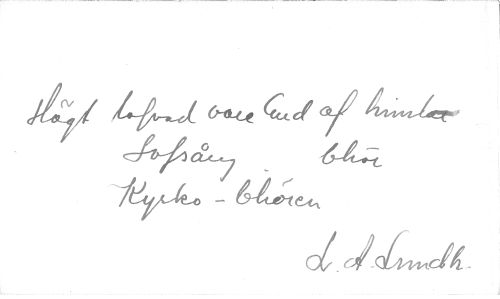 Högt lofvad vare Gud af himlar
Lofsång Chör
Kyrko-Chören
L. A. Lundh.